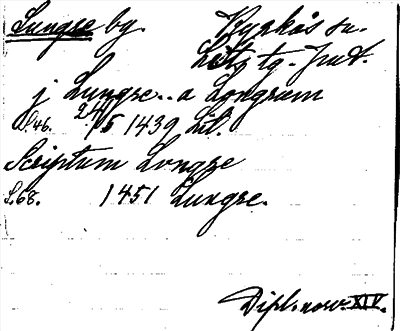 Lungre by. Kyrkås sn.
Lits tg. Jmt.
j Lungre.. a Longrum
S.46. 24/5 1439 Lit.
Scriptum Longre
S.68. 1451 Lungre.
Dipl. norv. XIV.